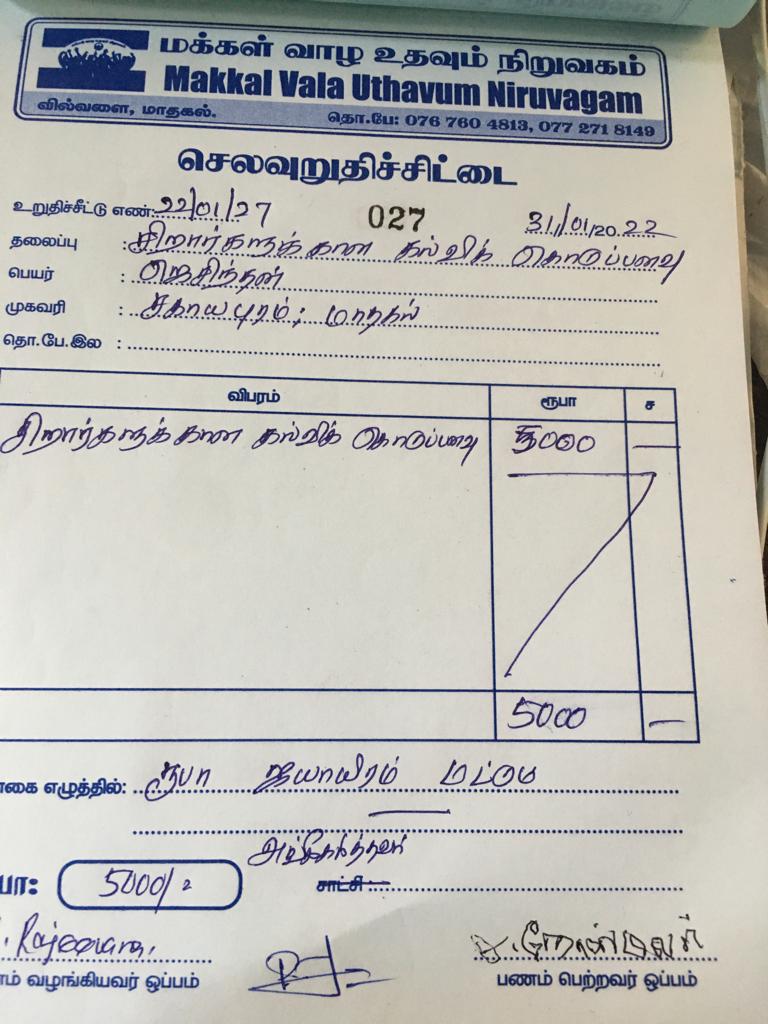 மக்கள் வாழ உதவும் நிறுவகம்
Makkal Vala Uthavum Niruvagam
வில்வளை, மாதகல். தொ.பே: 076 760 4813, 077 271 8149
செலவுறுதிச்சிட்டை
உறுதிச்சீட்டு எண்: 22/01/27 027 31/01/2022
தலைப்பு : சிறார்களுக்கான கல்விக் கொடுப்பனவு
பெயர் : ஜெசிந்தன்
முகவரி : சகாயபுரம், மாதகல்
தொ.பே.இல :
விபரம் ரூபா ச
சிறார்களுக்கான கல்விக் கொடுப்பனவு 5000 —
5000 —
கை எழுத்தில்: ரூபா ஐயாயிரம் மட்டும்
பா: 5000/= சாட்சி :
Rajeevan
ம் வழங்கியவர் ஒப்பம் பணம் பெற்றவர் ஒப்பம்